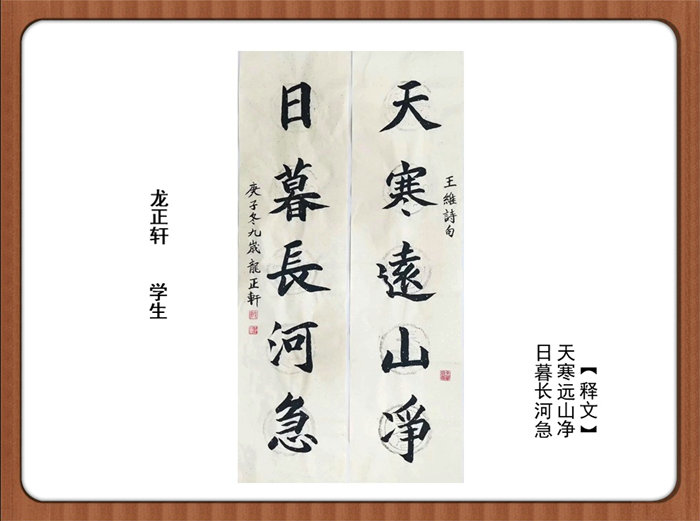 天寒遠山凈
王維詩句
日暮長河急
庚子冬九歲龍正軒
龙正轩 学生
【释文】
天寒远山净
日暮长河急